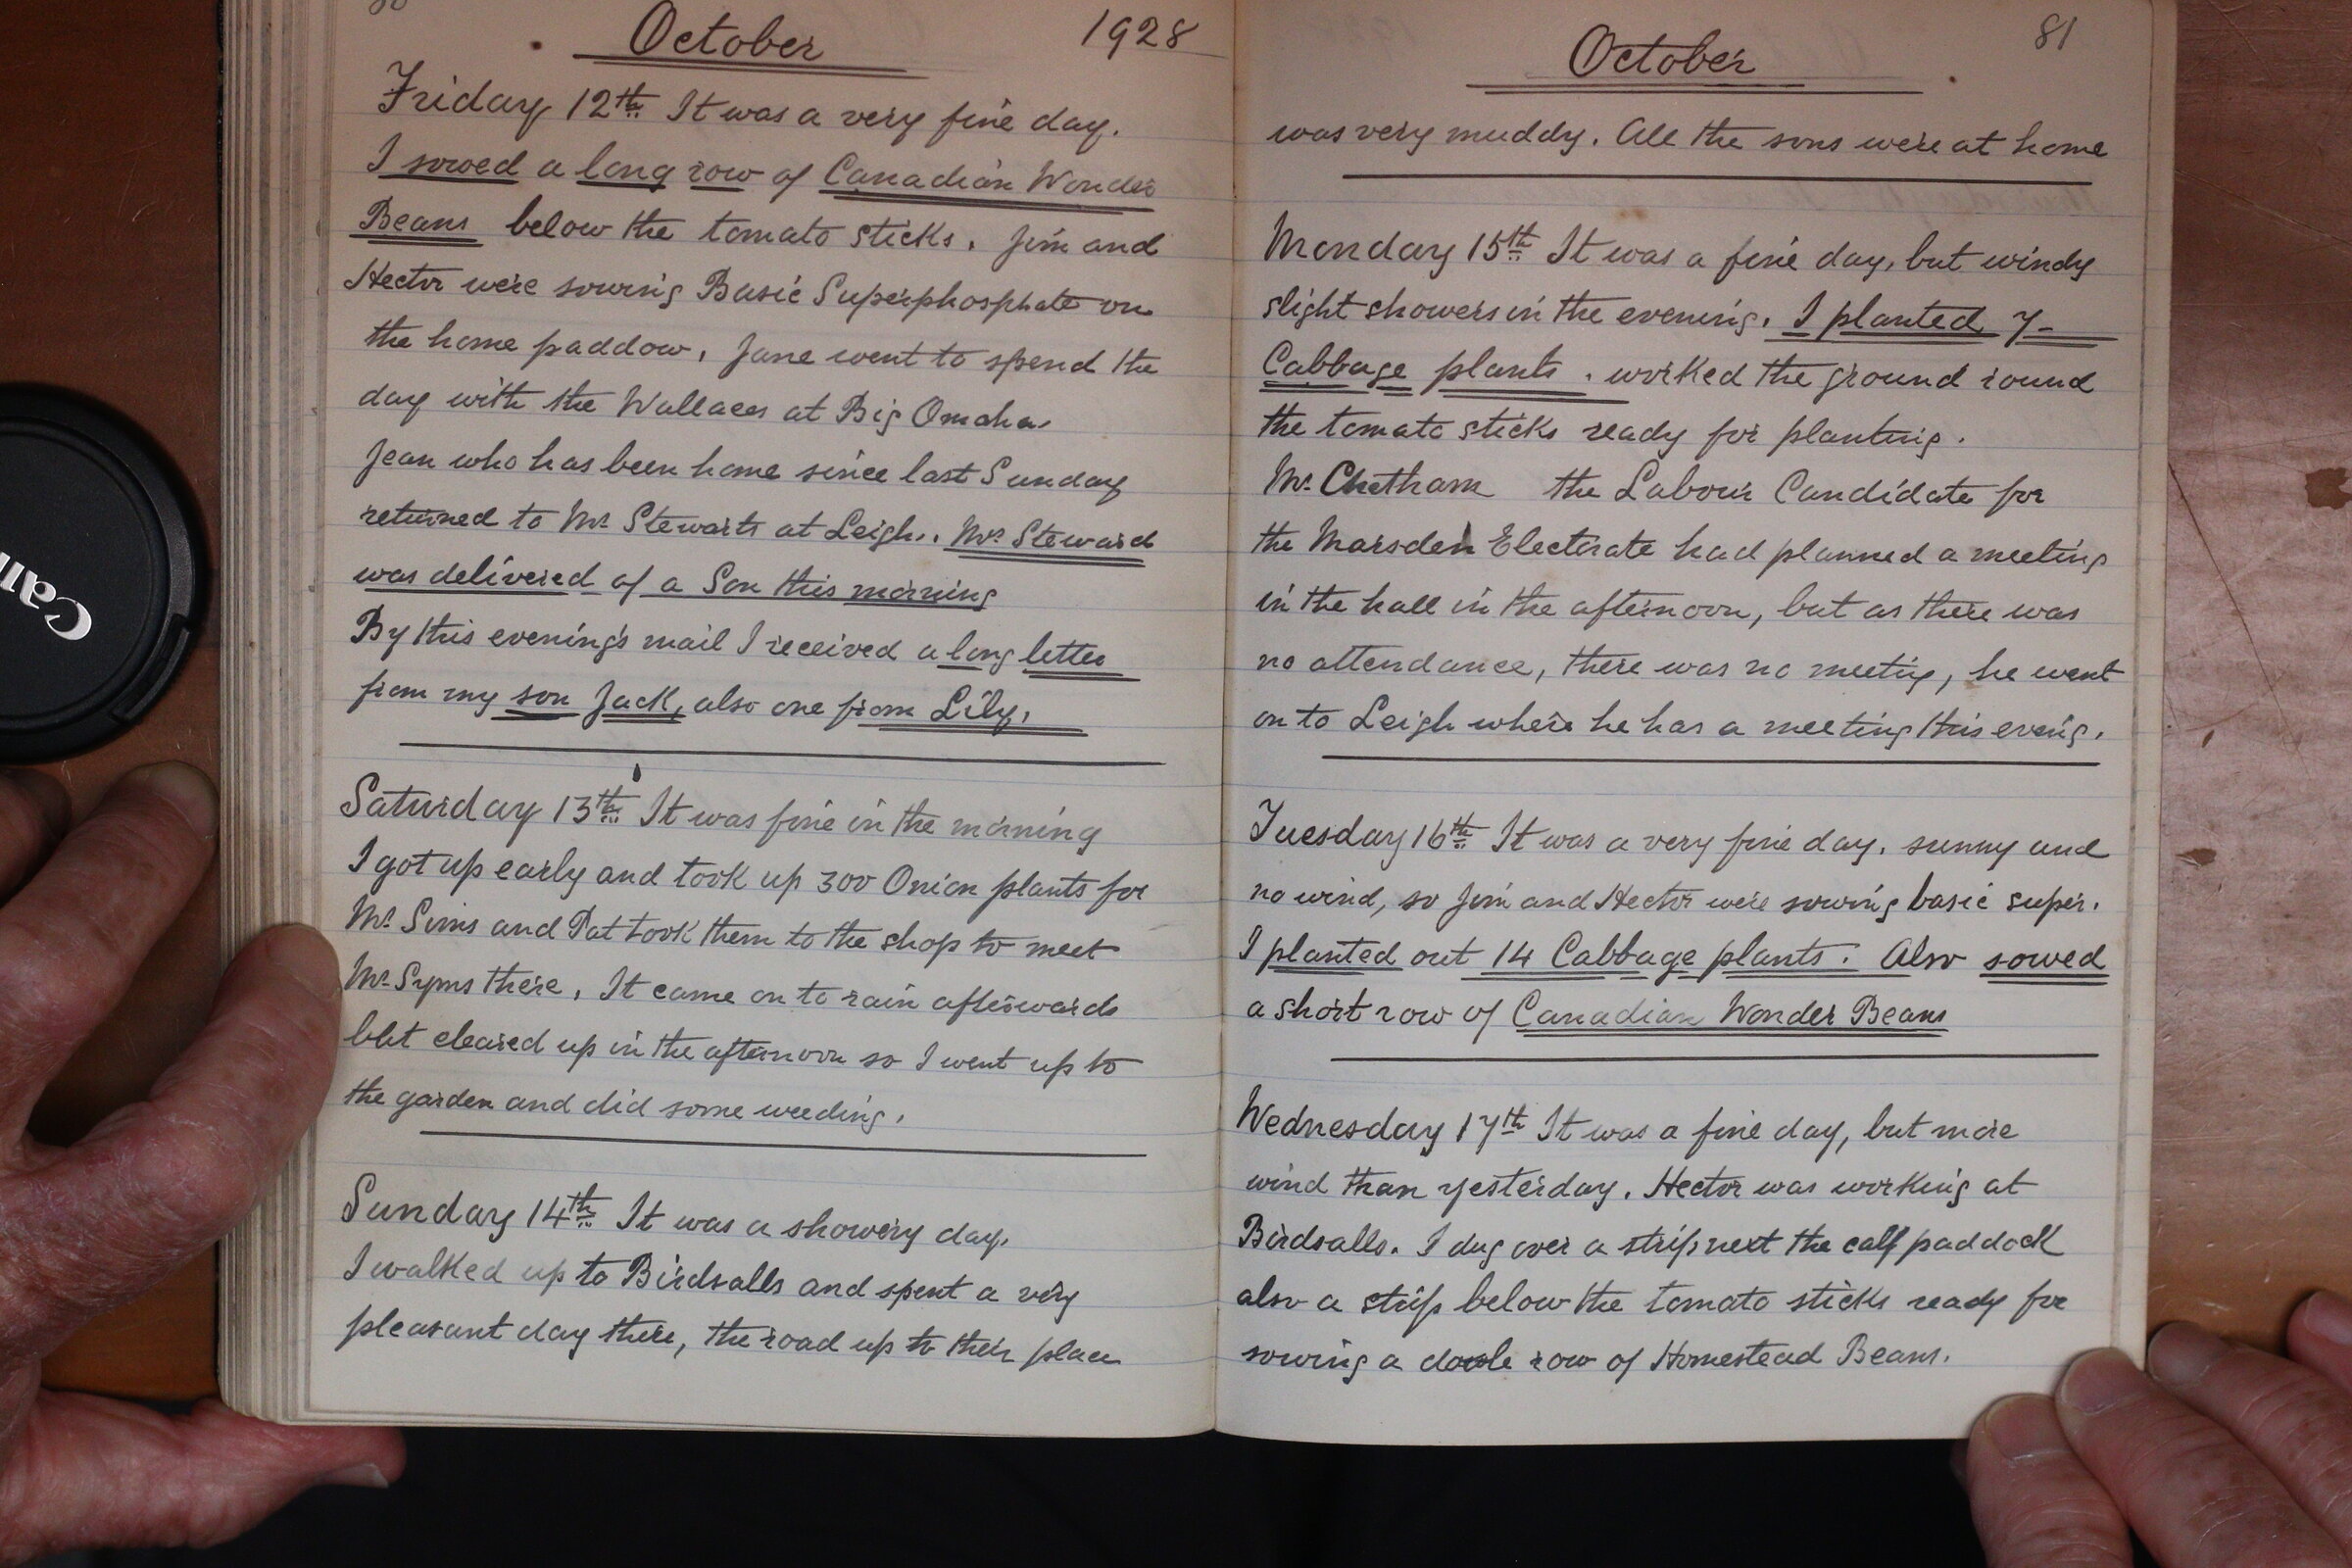 80
October 1928
Friday 12th It was a very fine day.
I sowed a long row of Canadian Wonder
Beans below the tomato sticks. Jim and
Hector were sowing Basic Superphosphate on
the home paddow. Jane went to spend the
day with the Wallaces at Big Omaha.
Jean who has been home since last Sunday
returned to Mr Stewarts at Leigh.. Mrs Steward
was delivered of a Son this morning
By this evening's mail I received a long letter
from my son Jack, also one from Lily.
Saturday 13th It was fine in the morning
I got up early and took up 300 Onion plants for
Mr Sims and Pat took them to the shop to meet
Mr Syms there. It came on to rain afterwards
but cleared up in the afternoon so I went up to
the garden and did some weeding.
Sunday 14th It was a showery day.
I walked up to Birdsalls and spent a very
pleasant day there, the road up to their place
81
October
was very muddy. All the sons were at home
Monday 15th It was a fine day, but windy
slight showers in the evening. I planted 7-
Cabbage plants. worked the ground round
the tomato sticks ready for planting.
Mr. Chetham the Labour Candidate for
the Marsden Electorate had planned a meeting
in the hall in the afternoon, but as there was
no attendance, there was no meetig, he went
on to Leigh where he has a meeting this evenig.
Tuesday 16th It was a very fine day. sunny and
no wind, so Jim and Hector were sowing basic super.
I planted out 14 Cabbage plants. Also sowed
a short row of Canadian Wonder Beans
Wednesday 17th It was a fine day, but more
wind than yesterday. Hector was working at
Birdsalls. I dug over a strip next the calf paddock
also a strip below the tomato sticks ready for
sowing a douле row of Homestead Beans.
Can